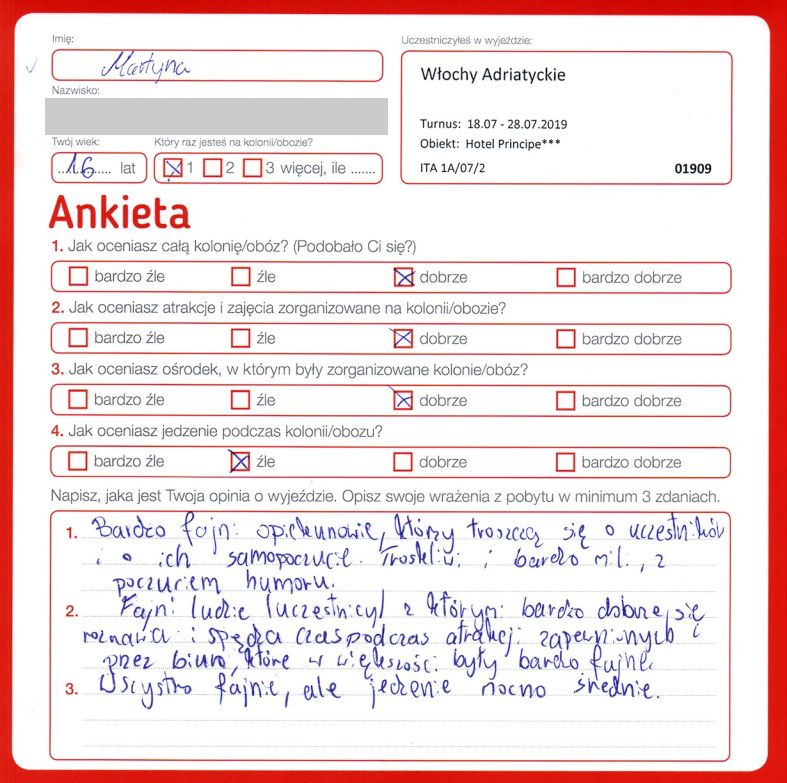 Imię:
Martyna
Nazwisko:
Twój wiek:
16 lat
Który raz jesteś na kolonii/obozie?
1 2 3 więcej, ile .......
Uczestniczyłeś w wyjeździe:
Włochy Adriatyckie
Turnus: 18.07 - 28.07.2019
Obiekt: Hotel Principe***
ITA 1A/07/2 01909
Ankieta
1. Jak oceniasz całą kolonię/obóz? (Podobało Ci się?)
bardzo źle źle dobrze bardzo dobrze
2. Jak oceniasz atrakcje i zajęcia zorganizowane na kolonii/obozie?
bardzo źle źle dobrze bardzo dobrze
3. Jak oceniasz ośrodek, w którym były zorganizowane kolonie/obóz?
bardzo źle źle dobrze bardzo dobrze
4. Jak oceniasz jedzenie podczas kolonii/obozu?
bardzo źle źle dobrze bardzo dobrze
Napisz, jaka jest Twoja opinia o wyjeździe. Opisz swoje wrażenia z pobytu w minimum 3 zdaniach.
1. Bardzo fajni opiekunowie, którzy troszczą się o uczestników
i o ich samopoczucie. Troskliwi i bardzo mili, z
poczuciem humoru.
2. Fajni ludzie (uczestnicy) z którymi bardzo dobrze się
rozmawia i spędza czas podczas atrakcji zapewnionych
przez biuro, które w większości były bardzo fajne.
3. Wszystko fajnie, ale jedzenie mocno średnie.